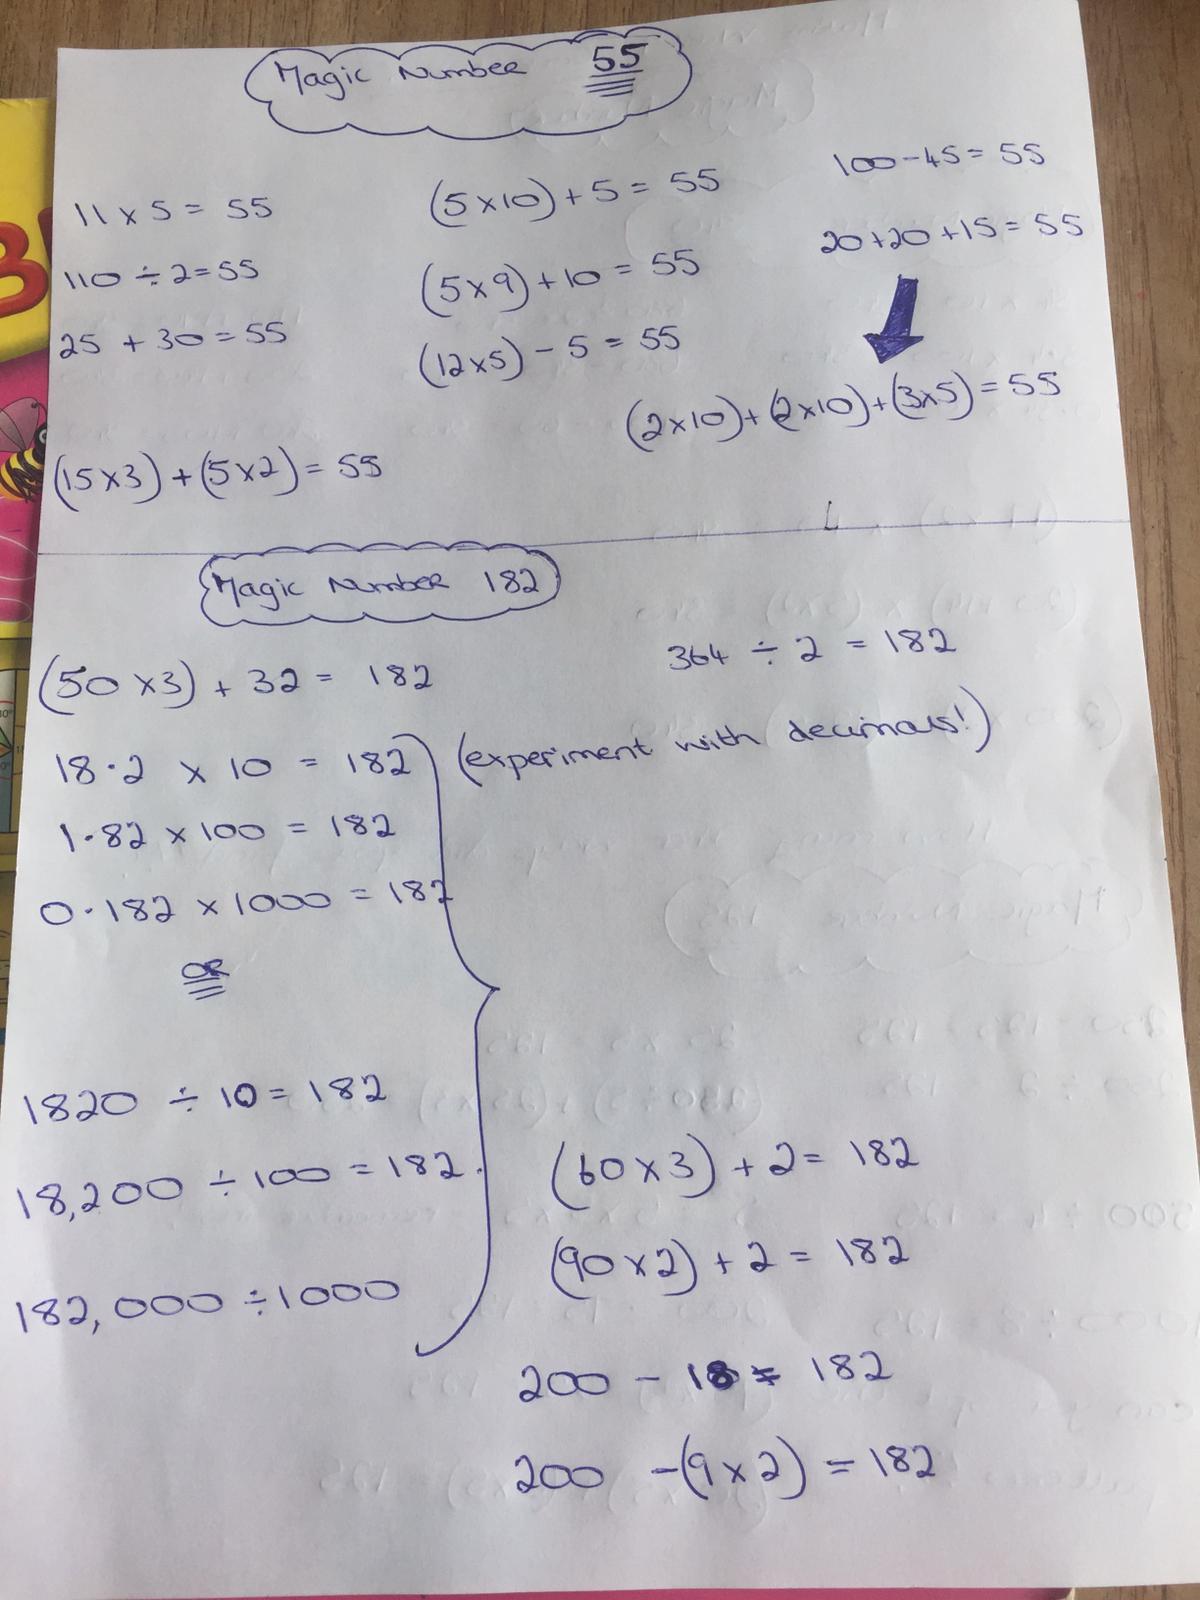 Magic Number 55
11 x 5 = 55
110 ÷ 2 = 55
25 + 30 = 55
(15x3) + (5x2) = 55
(5x10) + 5 = 55
(5x9) + 10 = 55
(12x5) - 5 = 55
100 - 45 = 55
20+20+15 = 55
(2x10) + (2x10) + (3x5) = 55
Magic Number 182
(50 x3) + 32 = 182
18·2 x 10 = 182
(experiment with decimals!)
1·82 x 100 = 182
0·182 x 1000 = 182
OR
1820 ÷ 10 = 182
18,200 ÷ 100 = 182.
182,000 ÷ 1000
364 ÷ 2 = 182
(60x3) + 2 = 182
(90x2) + 2 = 182
200 - 18 = 182
200 - (9x2) = 182